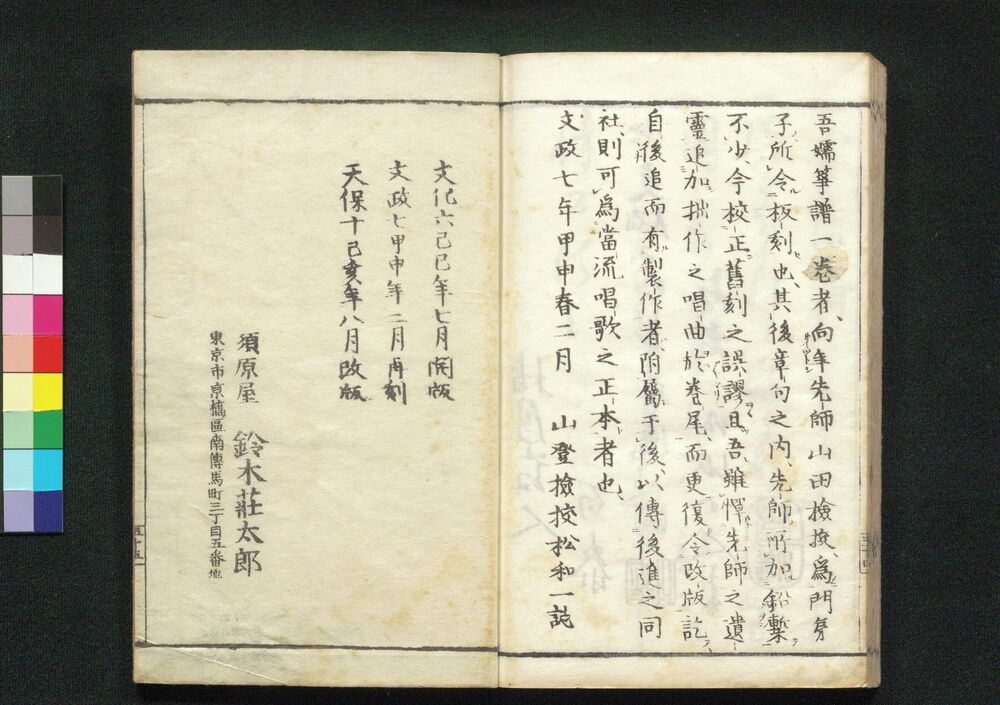 吾嬬箏譜一卷者、向年先師山田撿挍、爲門弟
子所令板刻也、其後章句之内、先師所加鉛槧
不少、今校正舊刻之誤謬、且吾、雖憚先師之遺
靈追加拙作之唱曲於卷尾、而更復令改版訖、
自後追而有製作者附屬于後、以傳後進之同
社、則可爲當流唱歌之正本者也、
文政七年甲申春二月　山登撿挍松和一誌
文化六己巳年七月開版
文政七甲申年二月再刻
天保十己亥年八月改版
須原屋　鈴木莊太郎
東京市京橋區南傳馬町三丁目五番地